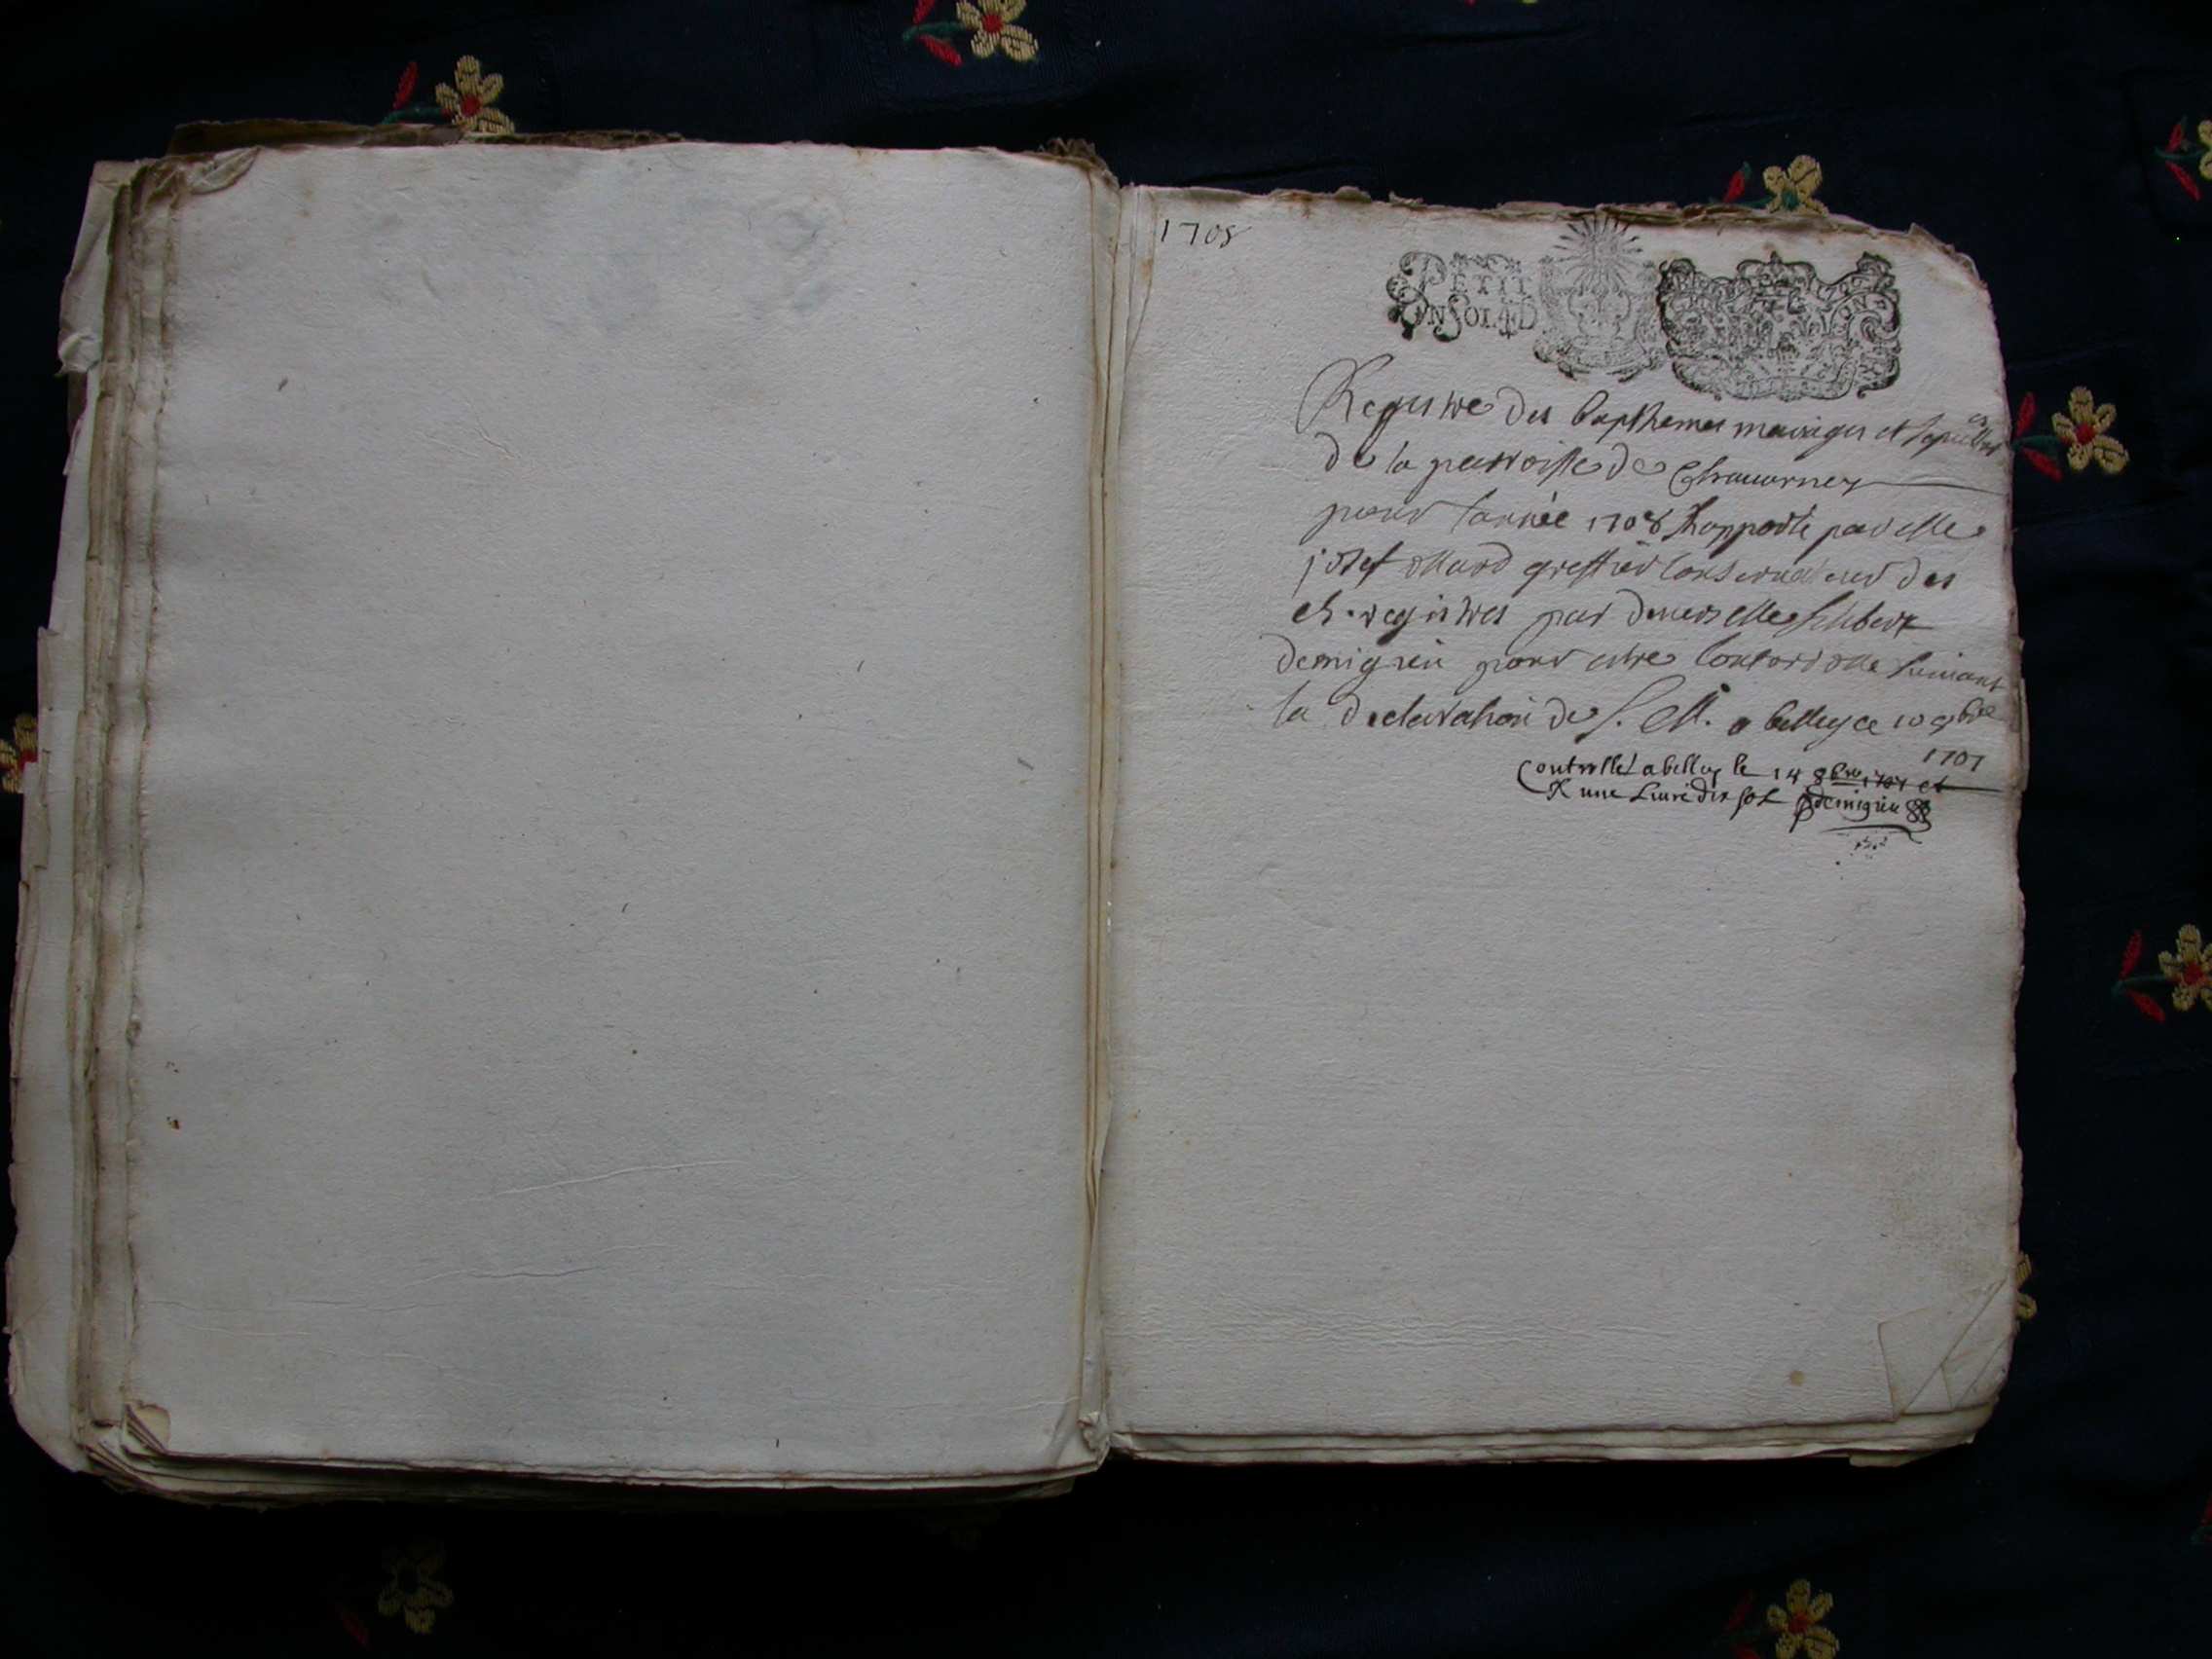 1708
PETIT
UN SOL 4 D
Registre des bapthemes mariages et sepultures
de la parroisse de Chavorney
pour l'année 1708 rapporté par Me
josef greffier conservateur des
registres par devers Me
demigieu pour estre suivant
la declaration de S. M. a belley ce 10 9bre
1707
Controllé a belley le 14 9bre 1707 et
R une Livre dix sol demigieu